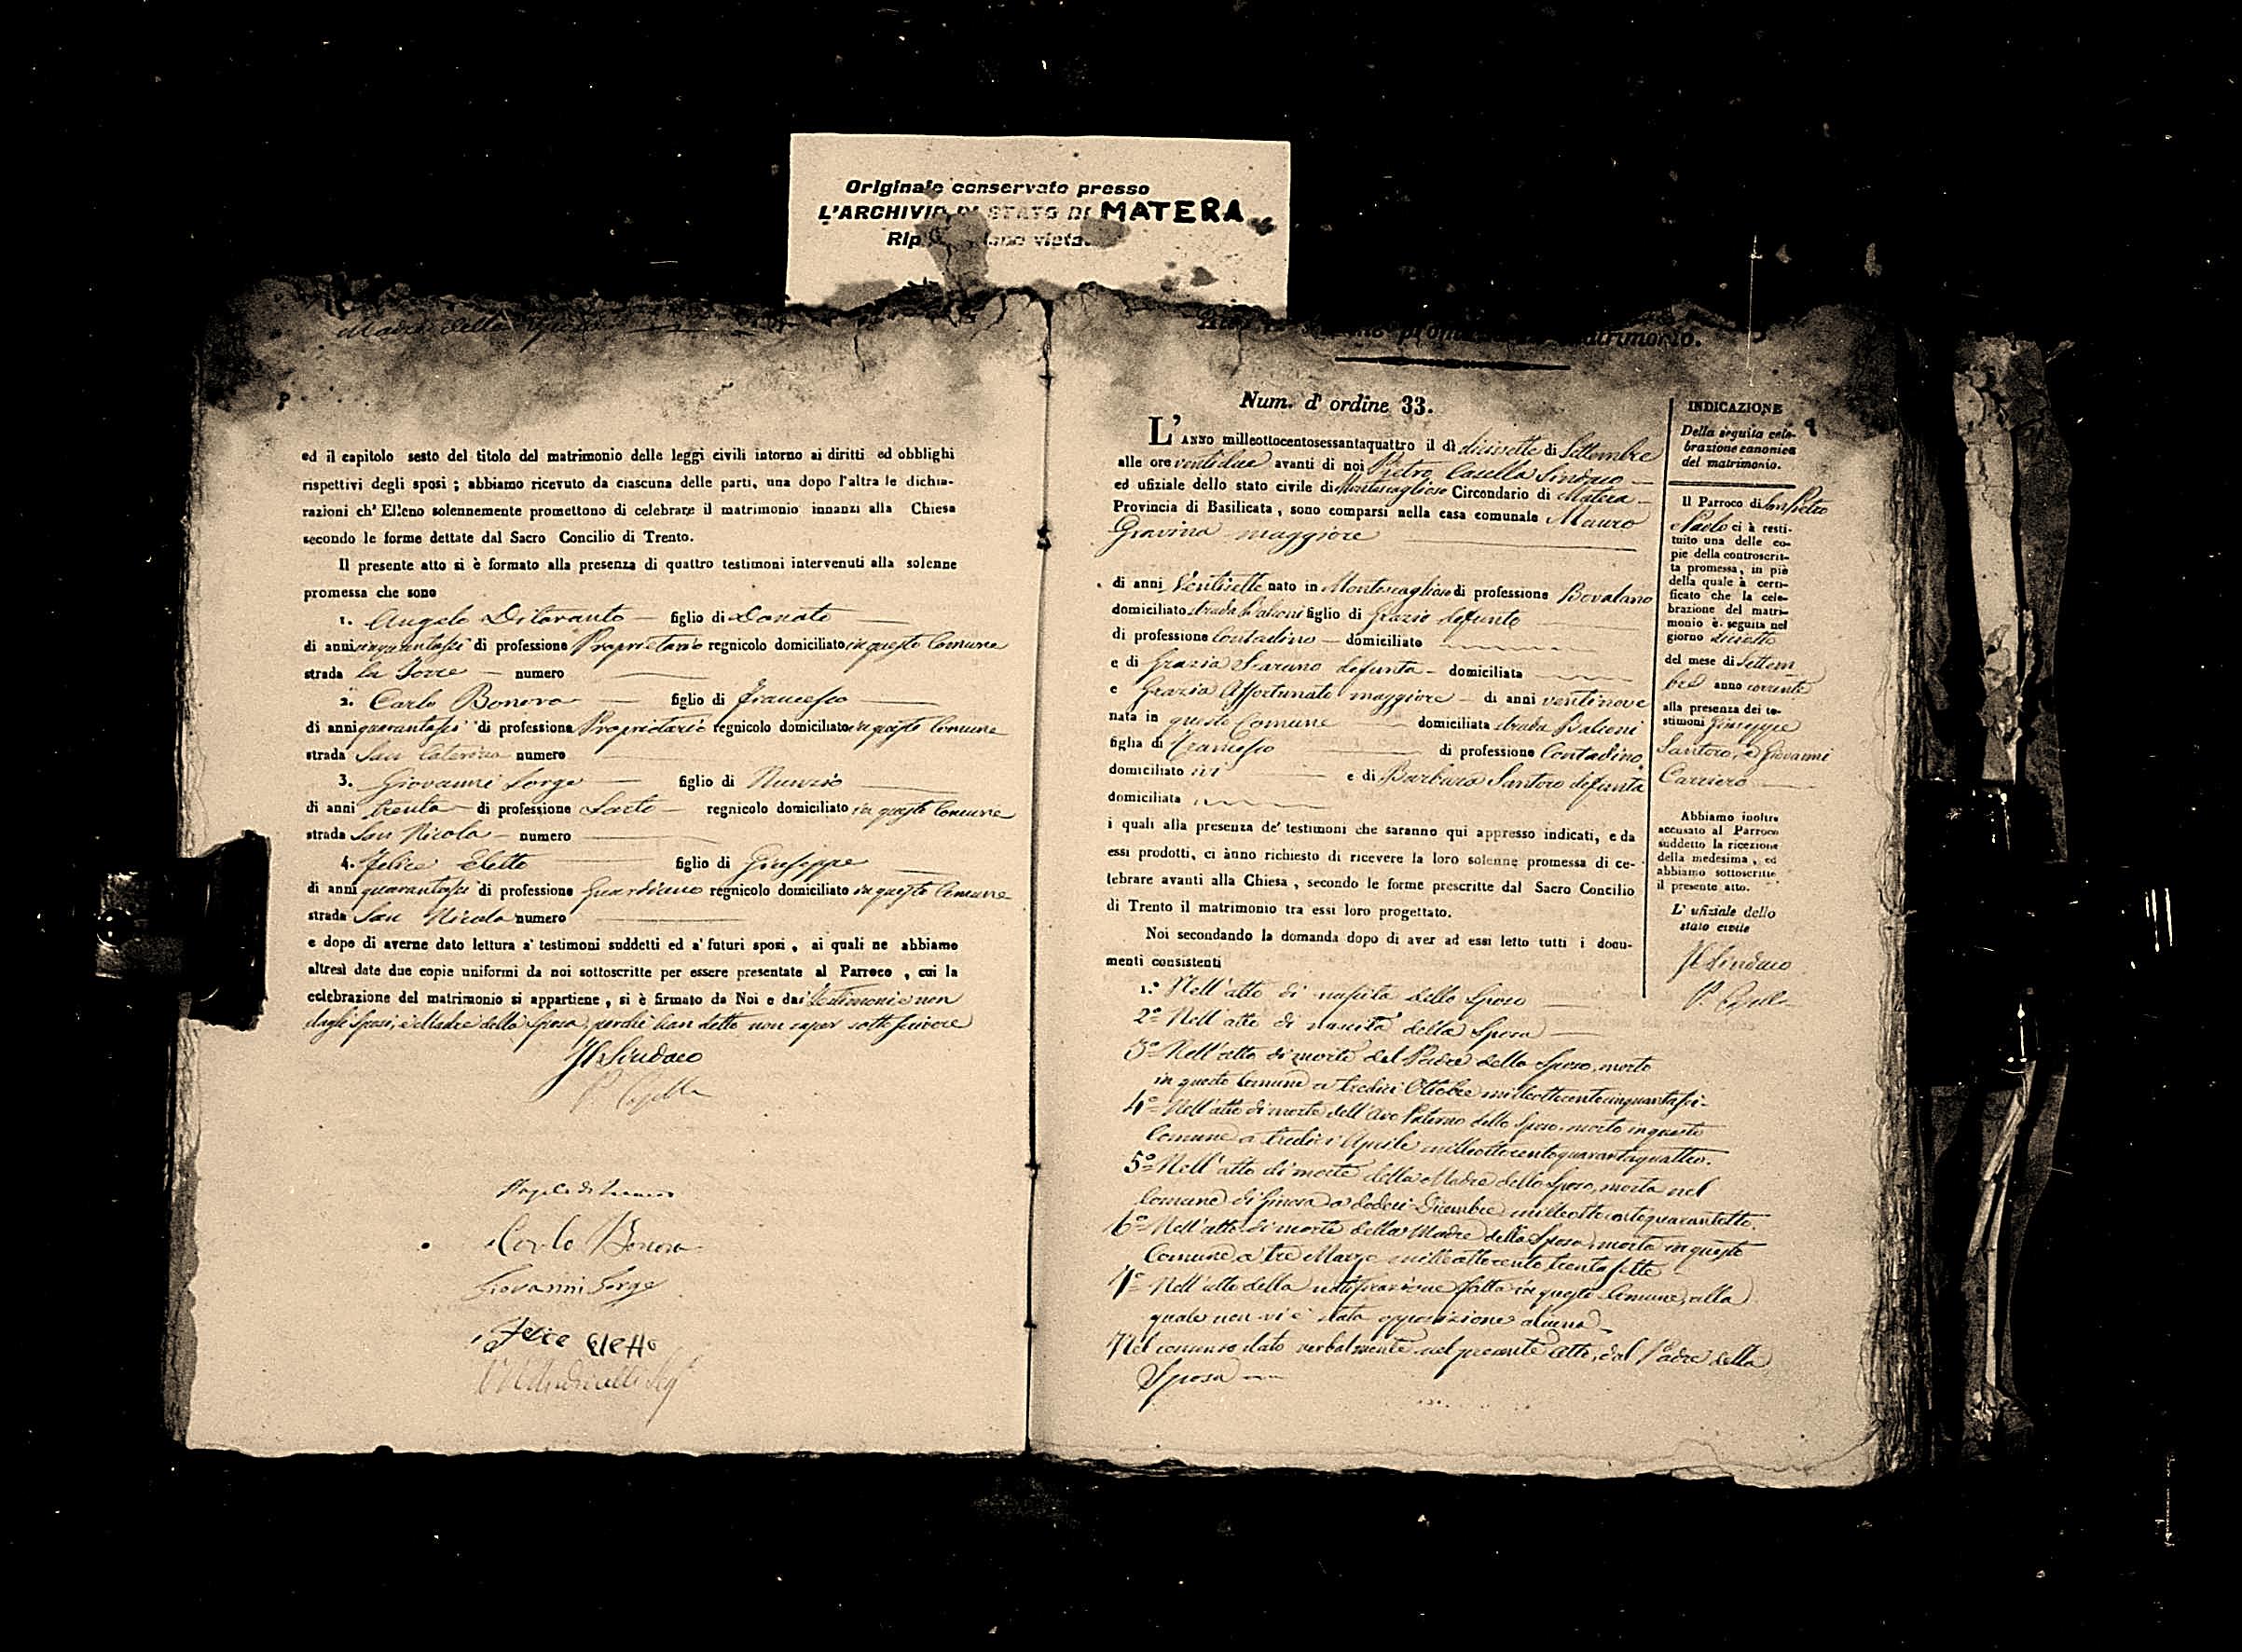 Originale conservato presso
L'ARCHIVIO DI STATO DI MATERA
Madre della Sposa
ed il capitolo sesto del titolo del matrimonio delle leggi civili intorno ai diritti ed obblighi
rispettivi degli sposi ; abbiamo ricevuto da ciascuna delle parti, una dopo l'altra le dichia-
razioni ch' Elleno solennemente promettono di celebrare il matrimonio innanzi alla Chiesa
secondo le forme dettate dal Sacro Concilio di Trento.
Il presente atto si è formato alla presenza di quattro testimoni intervenuti alla solenne
promessa che sono
1. Angelo Ditaranto figlio di Donato
di anni cinquantasei di professione Proprietario regnicolo domiciliato in questo Comune
strada la Torre numero
2. Carlo Bonora figlio di Francesco
di anni quarantasei di professione Proprietario regnicolo domiciliato in questo Comune
strada San Caterina numero
3. Giovanni Sorge figlio di Nunzio
di anni trenta di professione Sarto regnicolo domiciliato in questo Comune
strada San Nicola numero
4. Felice Eletto figlio di Giuseppe
di anni quarantasei di professione Guardiano regnicolo domiciliato in questo Comune
strada San Nicola numero
e dopo di averne dato lettura a' testimoni suddetti ed a' futuri sposi , ai quali ne abbiamo
altresì date due copie uniformi da noi sottoscritte per essere presentate al Parroco , cui la
celebrazione del matrimonio si appartiene , si è firmato da Noi e dai testimoni e non
dagli Sposi, e Madre della Sposa perchè han detto non saper sottoscrivere
Il Sindaco
P. Casella
Carlo Bonora
Giovanni Sorge
Felice Eletto
matrimonio.
Num. d' ordine 33.
L'ANNO milleottocentosessantaquattro il dì diciesette di Settembre
alle ore ventidue avanti di noi Pietro Casella Sindaco
ed ufiziale dello stato civile di Montescaglioso Circondario di Matera
Provincia di Basilicata , sono comparsi nella casa comunale Mauro
Gravina maggiore
di anni Ventisette nato in Montescaglioso di professione Bovalano
domiciliato strada Balconi figlio di Grazio defunto
di professione Contadino domiciliato
e di Grazia defunta domiciliata
e Grazia Affortunato maggiore di anni ventinove
nata in questo Comune domiciliata strada Balconi
figlia di Francesco di professione Contadino
domiciliato ivi e di Barbara Santoro defunta
domiciliata
i quali alla presenza de' testimoni che saranno qui appresso indicati, e da
essi prodotti, ci ànno richiesto di ricevere la loro solenne promessa di ce-
lebrare avanti alla Chiesa , secondo le forme prescritte dal Sacro Concilio
di Trento il matrimonio tra essi loro progettato.
Noi secondando la domanda dopo di aver ad essi letto tutti i docu-
menti consistenti
1.° Nell'atto di nascita dello Sposo
2.° Nell'atto di nascita della Sposa
3.° Nell'atto di morte del Padre dello Sposo, morto
in questo Comune a tredici Ottobre milleottocentocinquantasei
4.° Nell'atto di morte dell'Avo Paterno dello Sposo, morto in questo
Comune a tredici Aprile milleottocentoquarantaquattro.
5.° Nell'atto di morte della Madre dello Sposo, morta nel
Comune di Ginosa a dodeci Dicembre milleottocentoquarantotto.
6.° Nell'atto di morte della Madre della Sposa, morta in questo
Comune a tre Marzo milleottocento trentasette
7.° Nell'atto della notificazione fatta in questo Comune, alla
quale non vi è stata opposizione alcuna
Nel consenso dato verbalmente nel presente atto, dal Padre della
Sposa
INDICAZIONE
Della seguita cele-
brazione canonica
del matrimonio.
Il Parroco di San Pietro
e Paolo ci à resti-
tuito una delle co-
pie della controscrit-
ta promessa, in piè
della quale à certi-
ficato che la cele-
brazione del matri-
monio è seguita nel
giorno diciotto
del mese di Settem
bre anno corrente
alla presenza dei te-
stimoni Giuseppe
Santoro, e Giovanni
Carriero
Abbiamo inoltre
accusato al Parroco
suddetto la ricezione
della medesima , ed
abbiamo sottoscritto
il presente atto.
L' ufiziale dello
stato civile
Il Sindaco
P. Casella